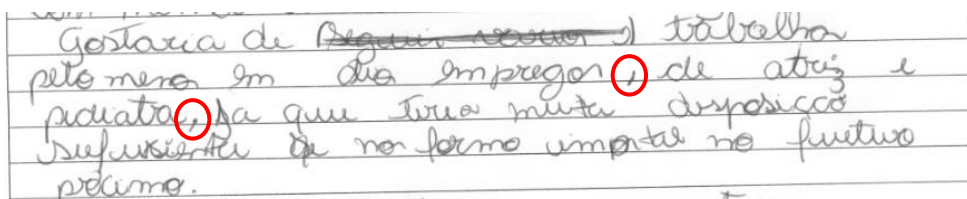 Gostaria de trabalha
pelo menos em dois empregos, de atriz e
pidiatra, ja que teria muita disposicão
sufusienti de nos formo impostas no fuetivo
prócimo.